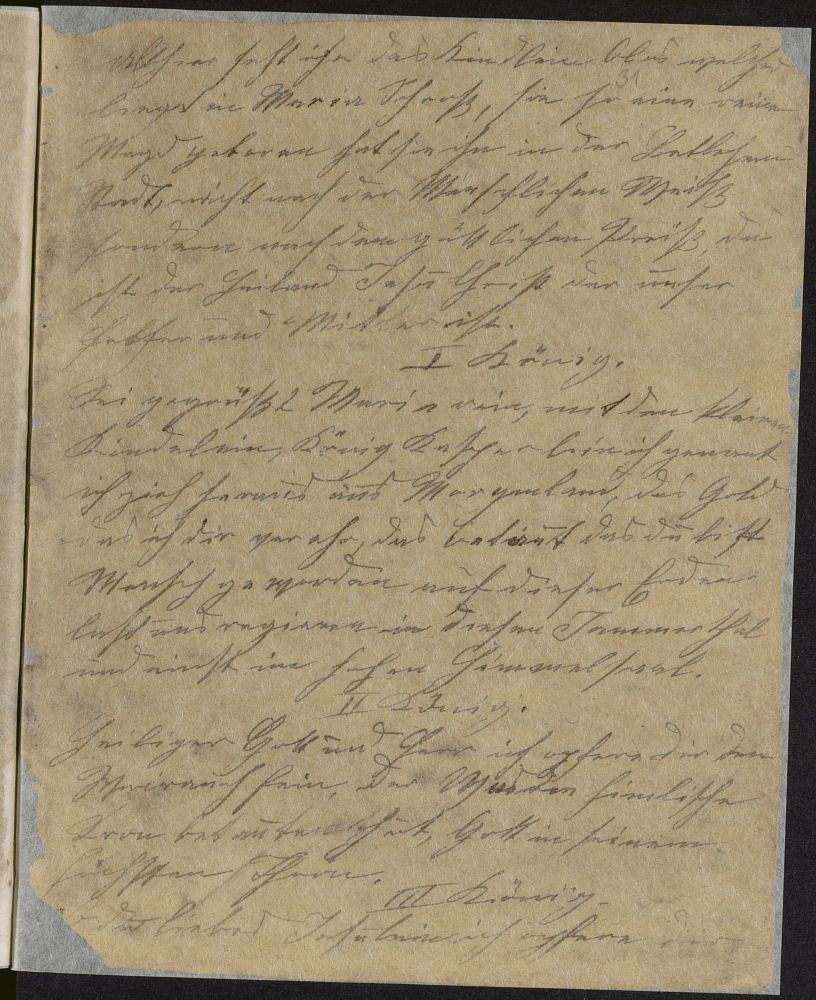 Allhier seht ihr das Kindlein blos welches
31
liegt in Maria Schooß, sie so eine reine
Magd geboren hat sie ihn in der Betlehem
Stadt, nicht nach der Menschlichen Weiß
sondern nach dem göttlichen Preiß, da
ist der Heiland Jesu Christ der unser
Helfer und Mittler ist.
I König.
Sei gegrüßt Maria rein, mit den kleinen
Kindelein, König Kasper bin ich genant
ich zieh heraus aus Morgenland, das Gold
das ich dir verehr, das bedeut das du bist
Mensch geworden auf dieser Erden
laß uns regieren in diesen Jammerthal
und einst im hohen Himmelsaal.
II König.
Heiliger Gott und Herr ich opfere dir den
Weirauch fein, der himlische
Kron bedeuten thut, Gott in seinem
höchsten Thron.
III König.
O du liebes Jesulein ich opfere dir